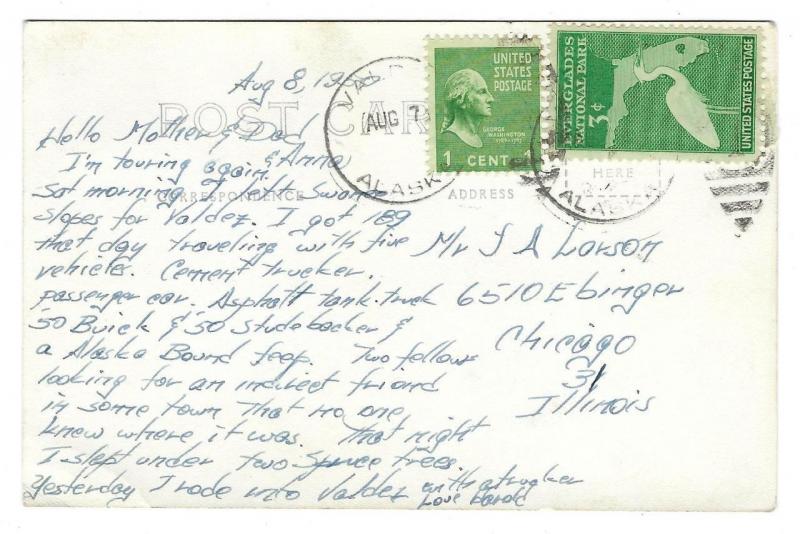 Aug 8, 19
POST CAR
CORRESPONDENCE
ADDRESS
HERE
VA
AUG 7
ALASK
ALASKA
UNITED STATES POSTAGE
GEORGE WASHINGTON
1789-1797
1 CENT
EVERGLADES NATIONAL PARK
3¢
UNITED STATES POSTAGE
Hello Mother & Dad
& Anna
I'm touring again.
Sat morning I left
slopes for Valdez. I got 189
that day traveling with five
vehicles. Cement trucker,
passenger car, Asphalt tank-truck
'50 Buick & '50 Studebacker &
a Alaska Bound Jeep. Two fellows
looking for an indirect friend
in some town that no one
knew where it was. That night
I slept under two Spruce trees.
Yesterday I rode into Valdez with a trucker
Love
Mr J A Larson
6510 Ebinger
Chicago
31
Illinois